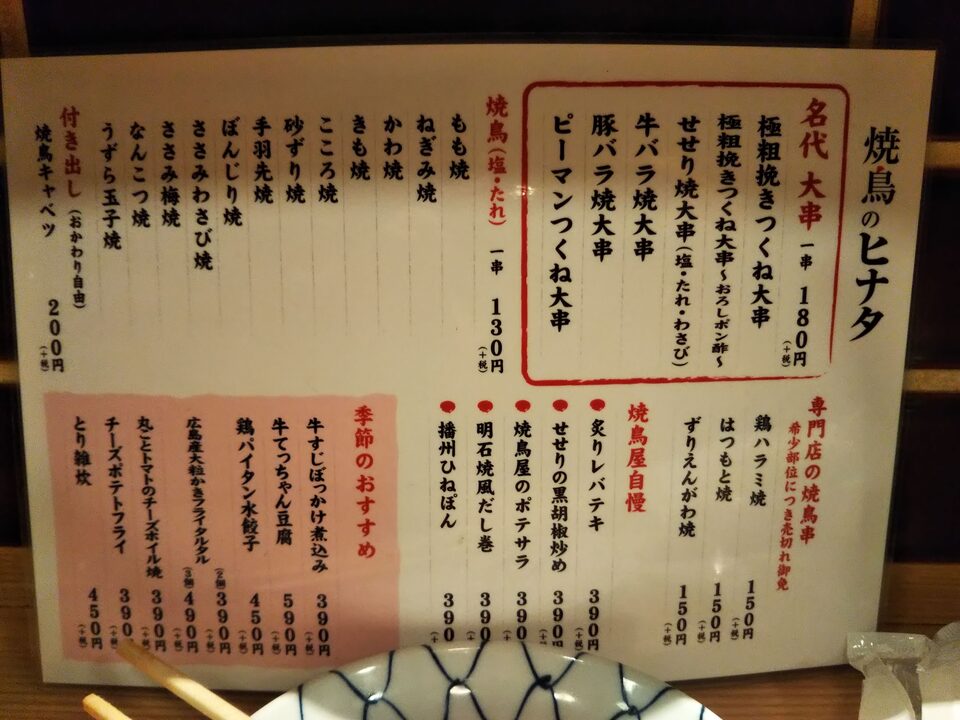 焼鳥のヒナタ
名代 大串 一串 180円(+税)
極粗挽きつくね大串
極粗挽きつくね大串~おろしポン酢~
せせり焼大串(塩・たれ・わさび)
牛バラ焼大串
豚バラ焼大串
ピーマンつくね大串
焼鳥(塩・たれ) 一串 130円(+税)
もも焼
ねぎみ焼
かわ焼
きも焼
こころ焼
砂ずり焼
手羽先焼
ぼんじり焼
ささみわさび焼
ささみ梅焼
なんこつ焼
うずら玉子焼
付き出し(おかわり自由)
焼鳥キャベツ 200円(+税)
専門店の焼鳥串
希少部位につき売切れ御免
鶏ハラミ焼 150円(+税)
はつもと焼 150円(+税)
ずりえんがわ焼 150円(+税)
焼鳥屋自慢
炙りレバテキ 390円(+税)
せせりの黒胡椒炒め 390円(+税)
焼鳥屋のポテサラ 390円
明石焼風だし巻 390
播州ひねぽん 390
季節のおすすめ
牛すじぼっかけ煮込み 390円(+税)
牛てっちゃん豆腐 590円(+税)
鶏パイタン水餃子 450円(+税)
広島産大粒かきフライタルタル (2個)390円(+税)
(3個)490円(+税)
丸ごとトマトのチーズボイル焼 390円(+税)
チーズポテトフライ 390円(+税)
とり雑炊 450円(+税)